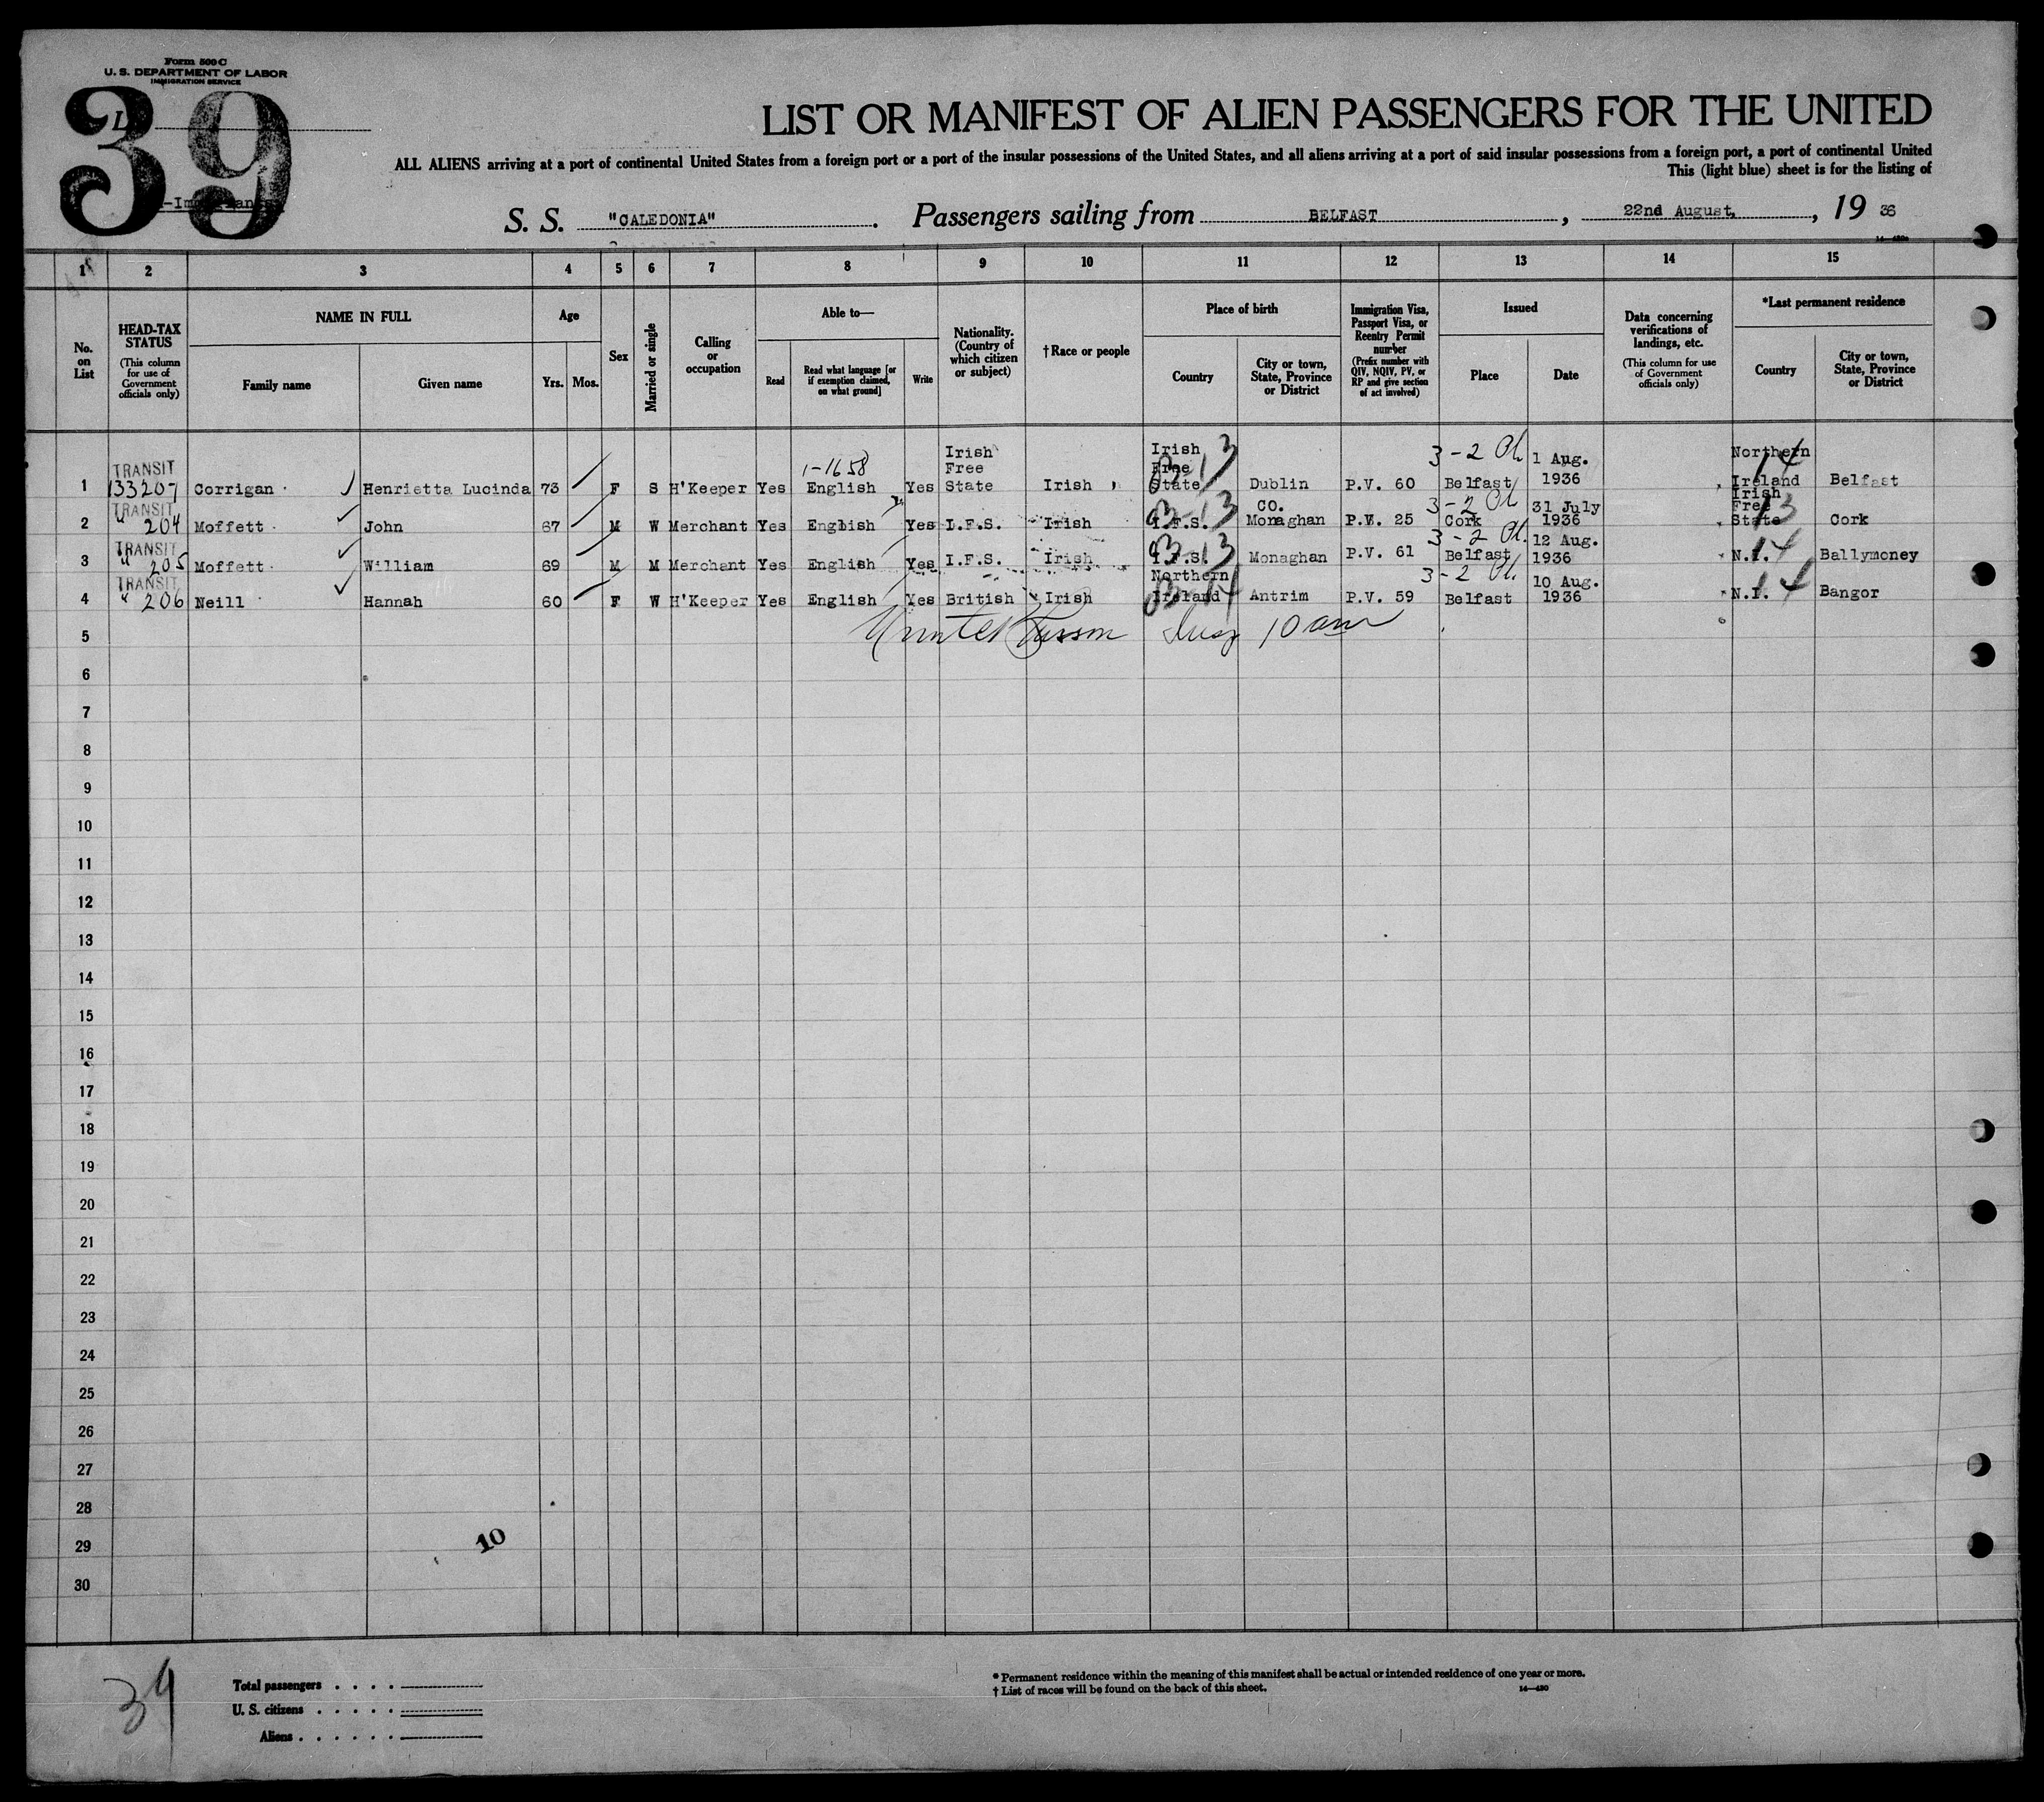 Form 500 C
U. S. DEPARTMENT OF LABOR
IMMIGRATION SERVICE
39
LIST OR MANIFEST OF ALIEN PASSENGERS FOR THE UNITED
ALL ALIENS arriving at a port of continental United States from a foreign port or a port of the insular possessions of the United States, and all aliens arriving at a port of said insular possessions from a foreign port, a port of continental United
This (light blue) sheet is for the listing of
S. S. "CALEDONIA". Passengers sailing from BELFAST, 22nd August, 1936
1 2 3 4 5 6 7 8 9 10 11 12 13 14 15
No. on List
HEAD-TAX STATUS (This column for use of Government officials only)
NAME IN FULL Family name Given name
Age Yrs. Mos.
Sex
Married or single
Calling or occupation
Able to— Read Read what language [or if exemption claimed, on what ground] Write
Nationality. (Country of which citizen or subject)
† Race or people
Place of birth Country City or town, State, Province or District
Immigration Visa, Passport Visa, or Reentry Permit number (Prefix number with QIV, NQIV, PV, or RP and give section of act involved)
Issued Place Date
Data concerning verifications of landings, etc. (This column for use of Government officials only)
*Last permanent residence Country City or town, State, Province or District
1 TRANSIT 133207 Corrigan Henrietta Lucinda 73 F S H'Keeper Yes 1-1658 English Yes Irish Free State Irish Irish Free State Dublin P.V. 60 3-2 Belfast 1 Aug. 1936 Northern Ireland 14 Belfast
2 TRANSIT " 204 Moffett John 67 M W Merchant Yes English Yes I.F.S. Irish I.F.S. CO. Monaghan P.V. 25 3-2 Cork 31 July 1936 Irish Free State 13 Cork
3 TRANSIT " 205 Moffett William 69 M M Merchant Yes English Yes I.F.S. Irish I.F.S. Monaghan P.V. 61 3-2 Belfast 12 Aug. 1936 N.I. 14 Ballymoney
4 TRANSIT " 206 Neill Hannah 60 F W H'Keeper Yes English Yes British Irish Northern Ireland Antrim P.V. 59 3-2 Belfast 10 Aug. 1936 N.I. 14 Bangor
5 10 am
6
7
8
9
10
11
12
13
14
15
16
17
18
19
20
21
22
23
24
25
26
27
28
29
30
10
39
Total passengers
U. S. citizens
Aliens
* Permanent residence within the meaning of this manifest shall be actual or intended residence of one year or more.
† List of races will be found on the back of this sheet.
14—430